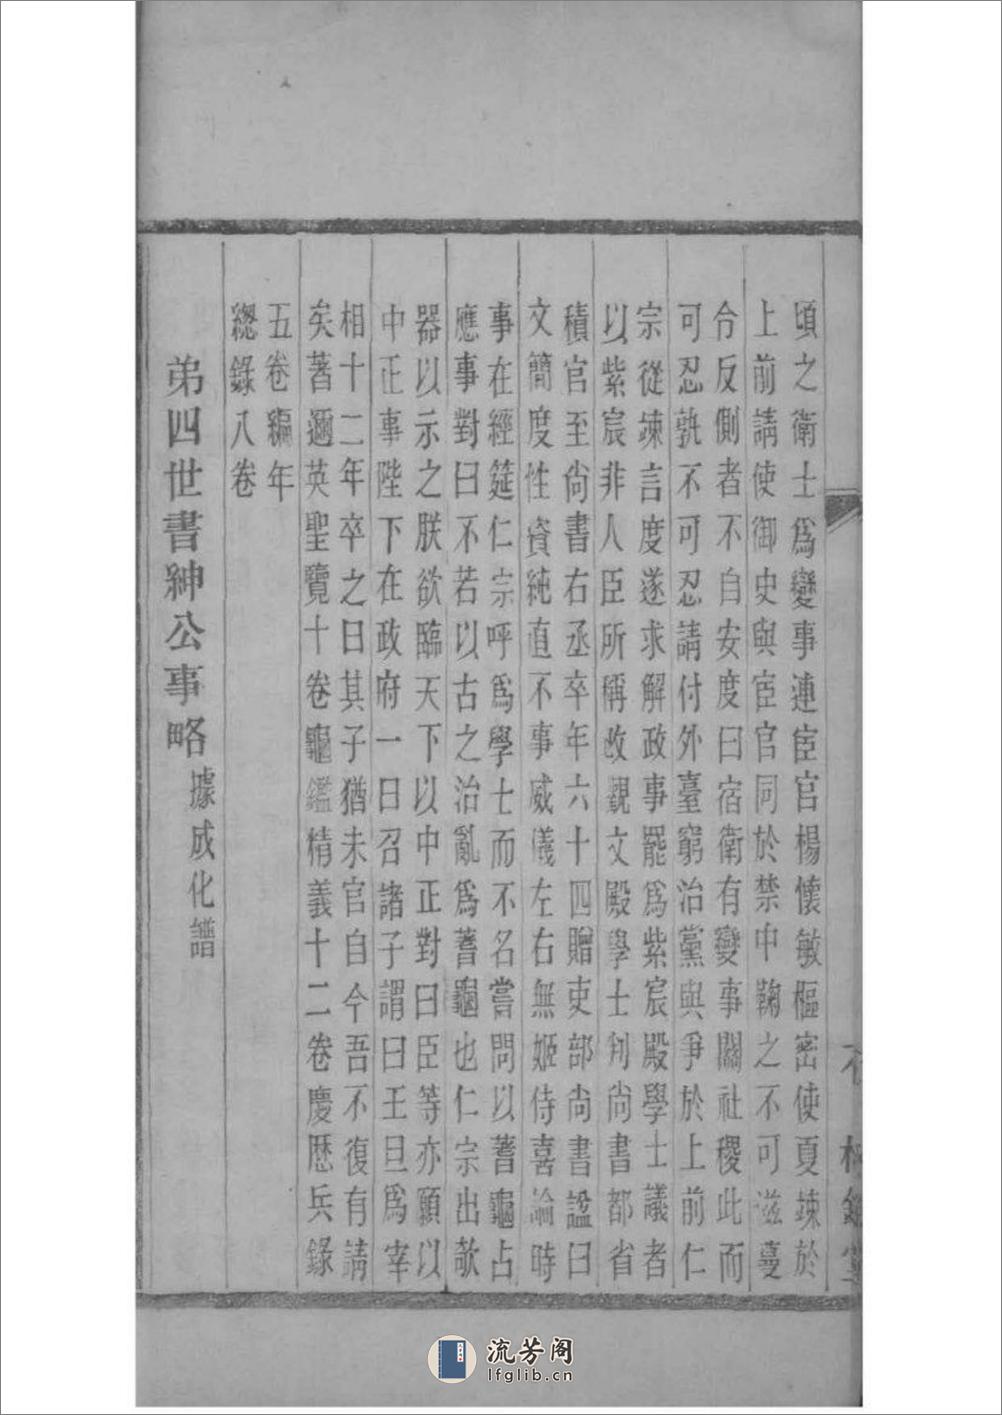 頃之衛士爲變事連宦官楊懷敏樞密使夏竦於
上前請使御史與宦官同於禁中鞠之不可滋蔓
令反側者不自安度曰宿衛有變事關社稷此而
可忍孰不可忍請付外臺窮治黨與爭於上前仁
宗從竦言度遂求解政事罷爲紫宸殿學士議者
以紫宸非人臣所稱改觀文殿學士判尚書都省
積官至尚書右丞卒年六十四贈吏部尚書諡曰
文簡度性資純直不事威儀左右無姬侍喜論時
事在經筵仁宗呼爲學士而不名嘗問以蓍龜占
應事對曰不若以古之治亂爲蓍龜也仁宗出欹
器以示之朕欲臨天下以中正對曰臣等亦願以
中正事陛下在政府一日召諸子謂曰王旦爲宰
相十二年卒之日其子猶未官自今吾不復有請
矣著邇英聖覽十卷龜鑑精義十二卷慶歷兵錄
五卷編年
總錄八卷
弟四世書紳公事略據成化譜
流芳阁
lfglib.cn